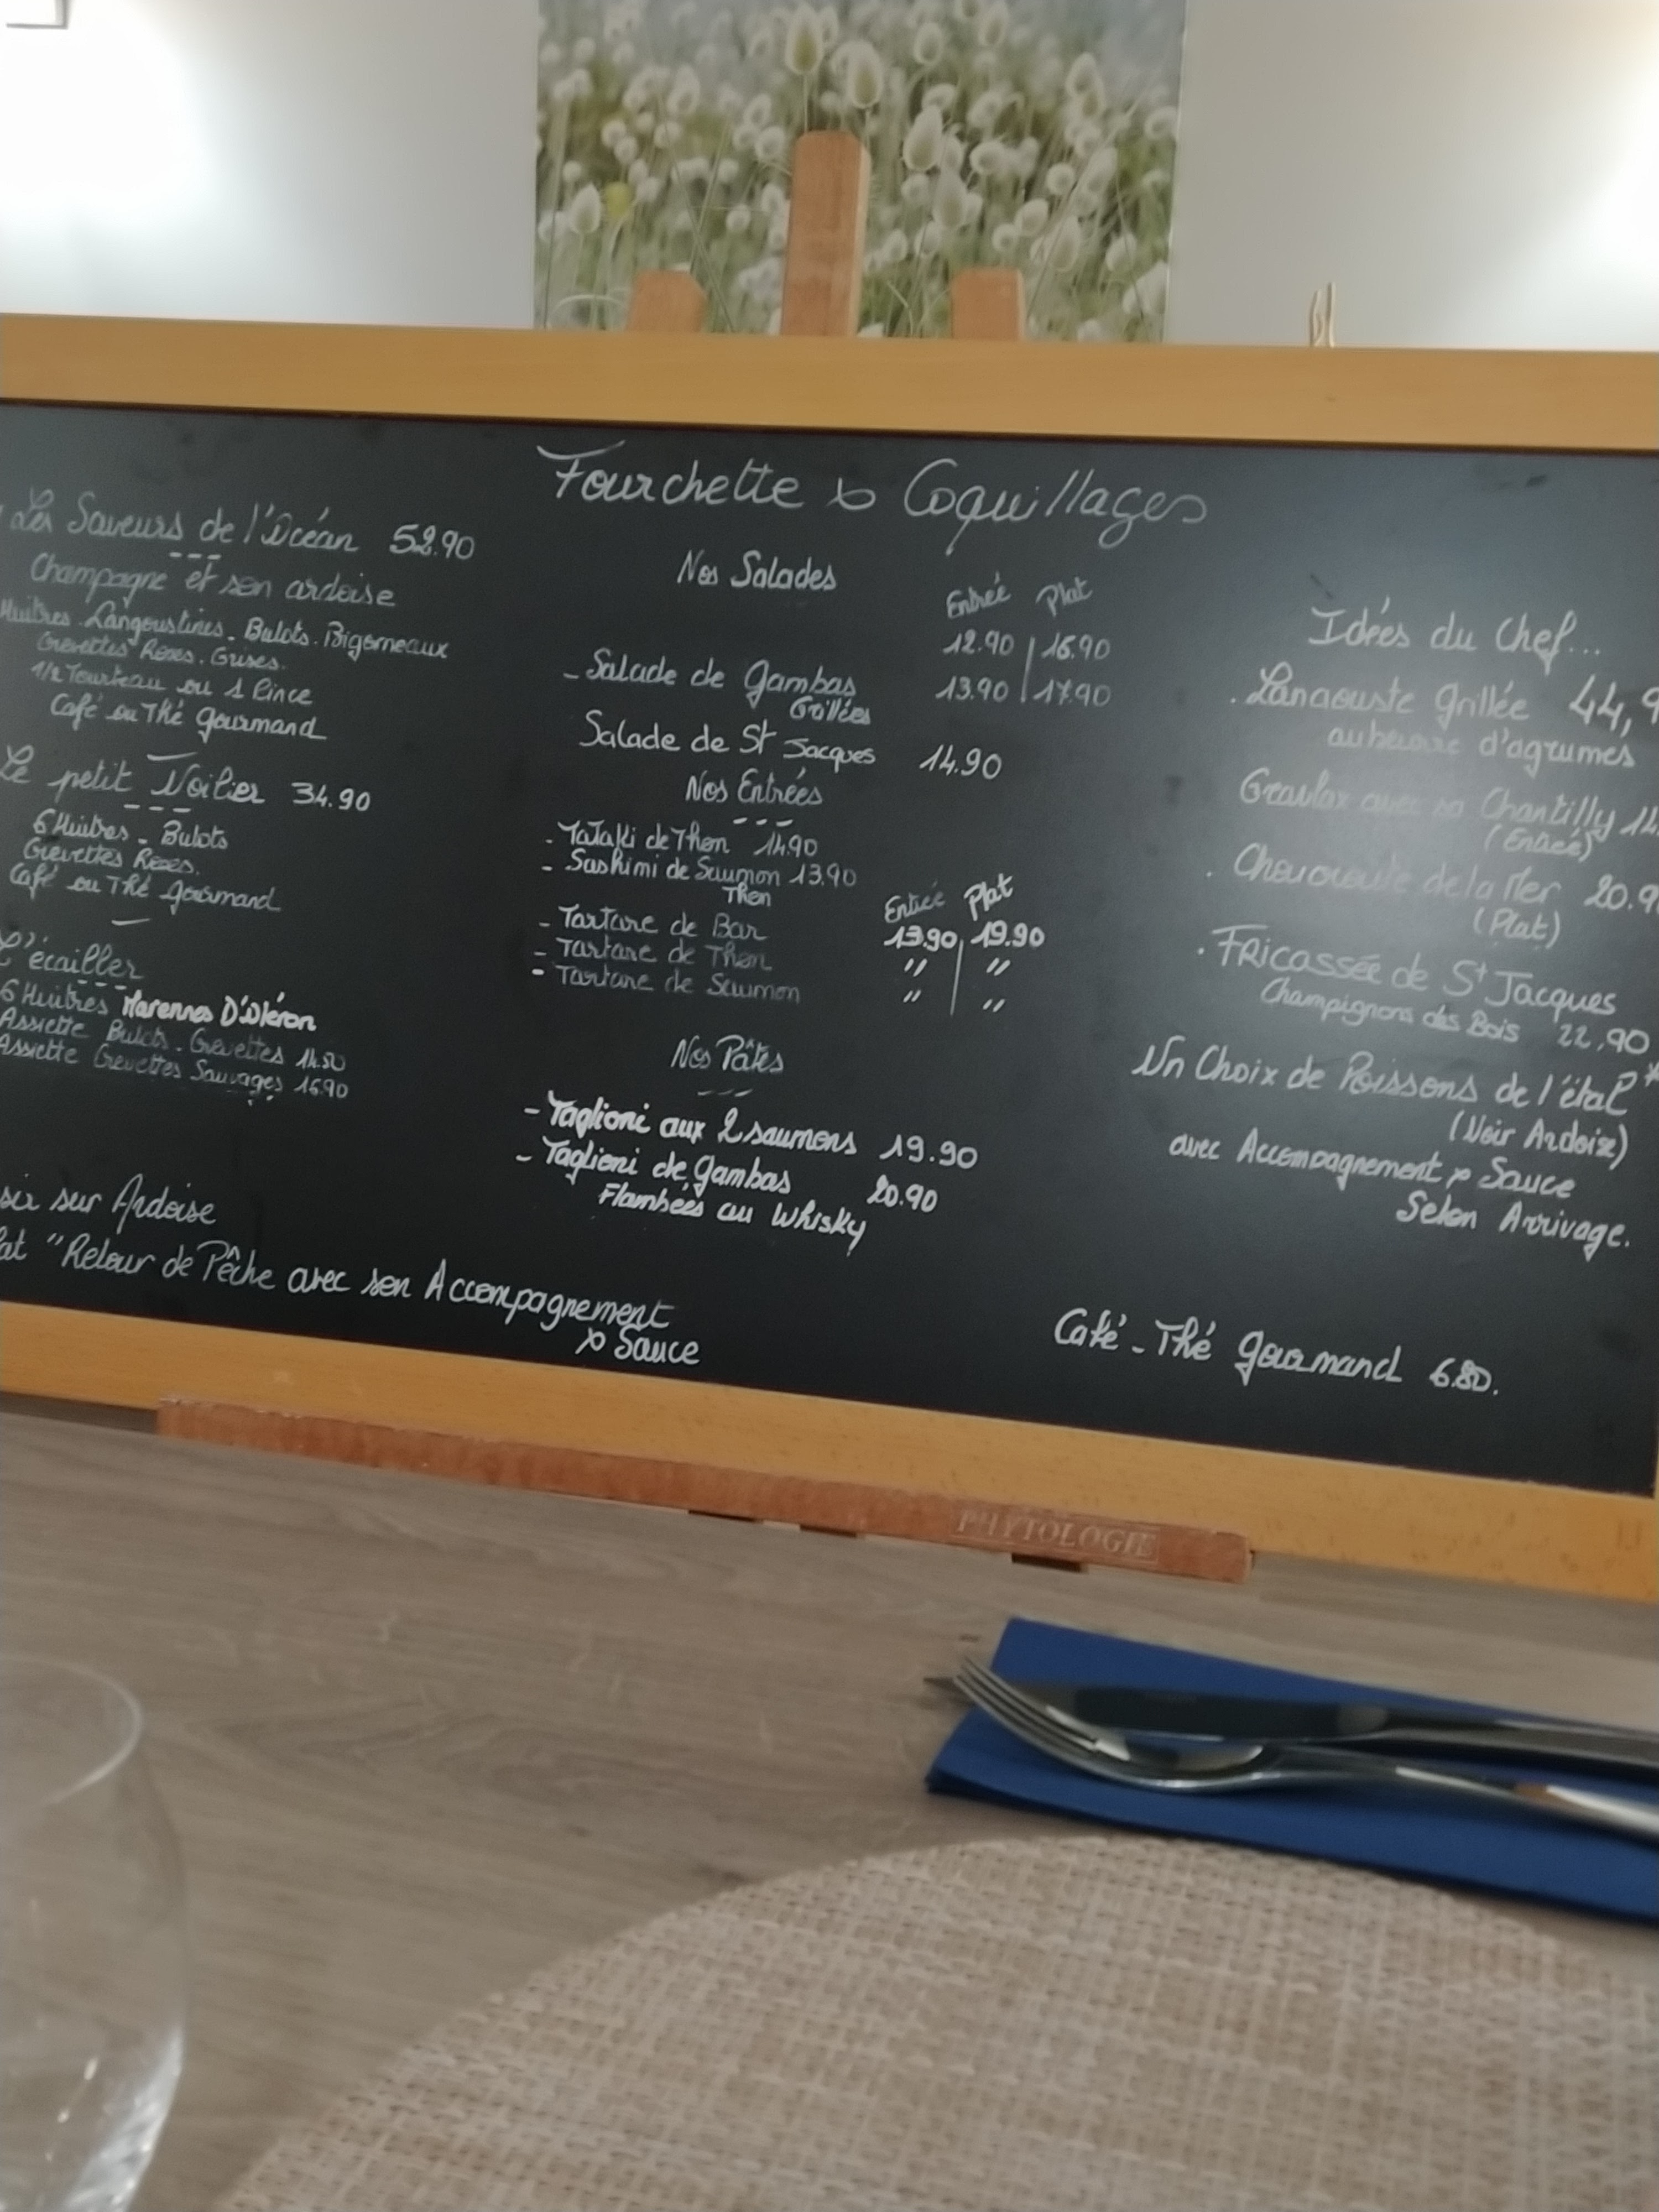 Fourchette & Coquillages
Les Saveurs de l'Océan 52.90
Champagne et son ardoise
Huitres. Langoustines. Bulots. Bigorneaux
Crevettes Roses. Grises.
1/2 Tourteau ou 1 Pince
Café ou Thé Gourmand
Le petit Voilier 34.90
6 Huitres - Bulots
Crevettes Roses.
Café ou Thé Gourmand
L'écailler
6 Huitres Marennes D'Oléron
Assiette Bulots. Crevettes 14.50
Assiette Crevettes Sauvages 16.90
sur Ardoise
"Retour de Pêche avec son Accompagnement
& Sauce
Nos Salades
Entrée Plat
12.90 | 16.90
- Salade de Gambas 13.90 | 17.90
Grillées
Salade de St Jacques 14.90
Nos Entrées
- Tataki de Thon 14.90
- Sashimi de Saumon 13.90
Thon
Entrée Plat
- Tartare de Bar 13.90 | 19.90
- Tartare de Thon " | "
- Tartare de Saumon " | "
Nos Pâtes
- Taglioni aux 2 saumons 19.90
- Taglioni de Gambas 20.90
Flambées au Whisky
Idées du Chef...
. Langouste Grillée 44,9
au beurre d'agrumes
Gravlax avec sa Chantilly 14.
(Entrée)
. Choucroute de la Mer 20.9
(Plat)
. Fricassée de St Jacques
Champignons des Bois 22,90
Un Choix de Poissons de l'étal *
(Voir Ardoise)
avec Accompagnement & Sauce
Selon Arrivage.
Café - Thé Gourmand 6.80.
PHYTOLOGIE